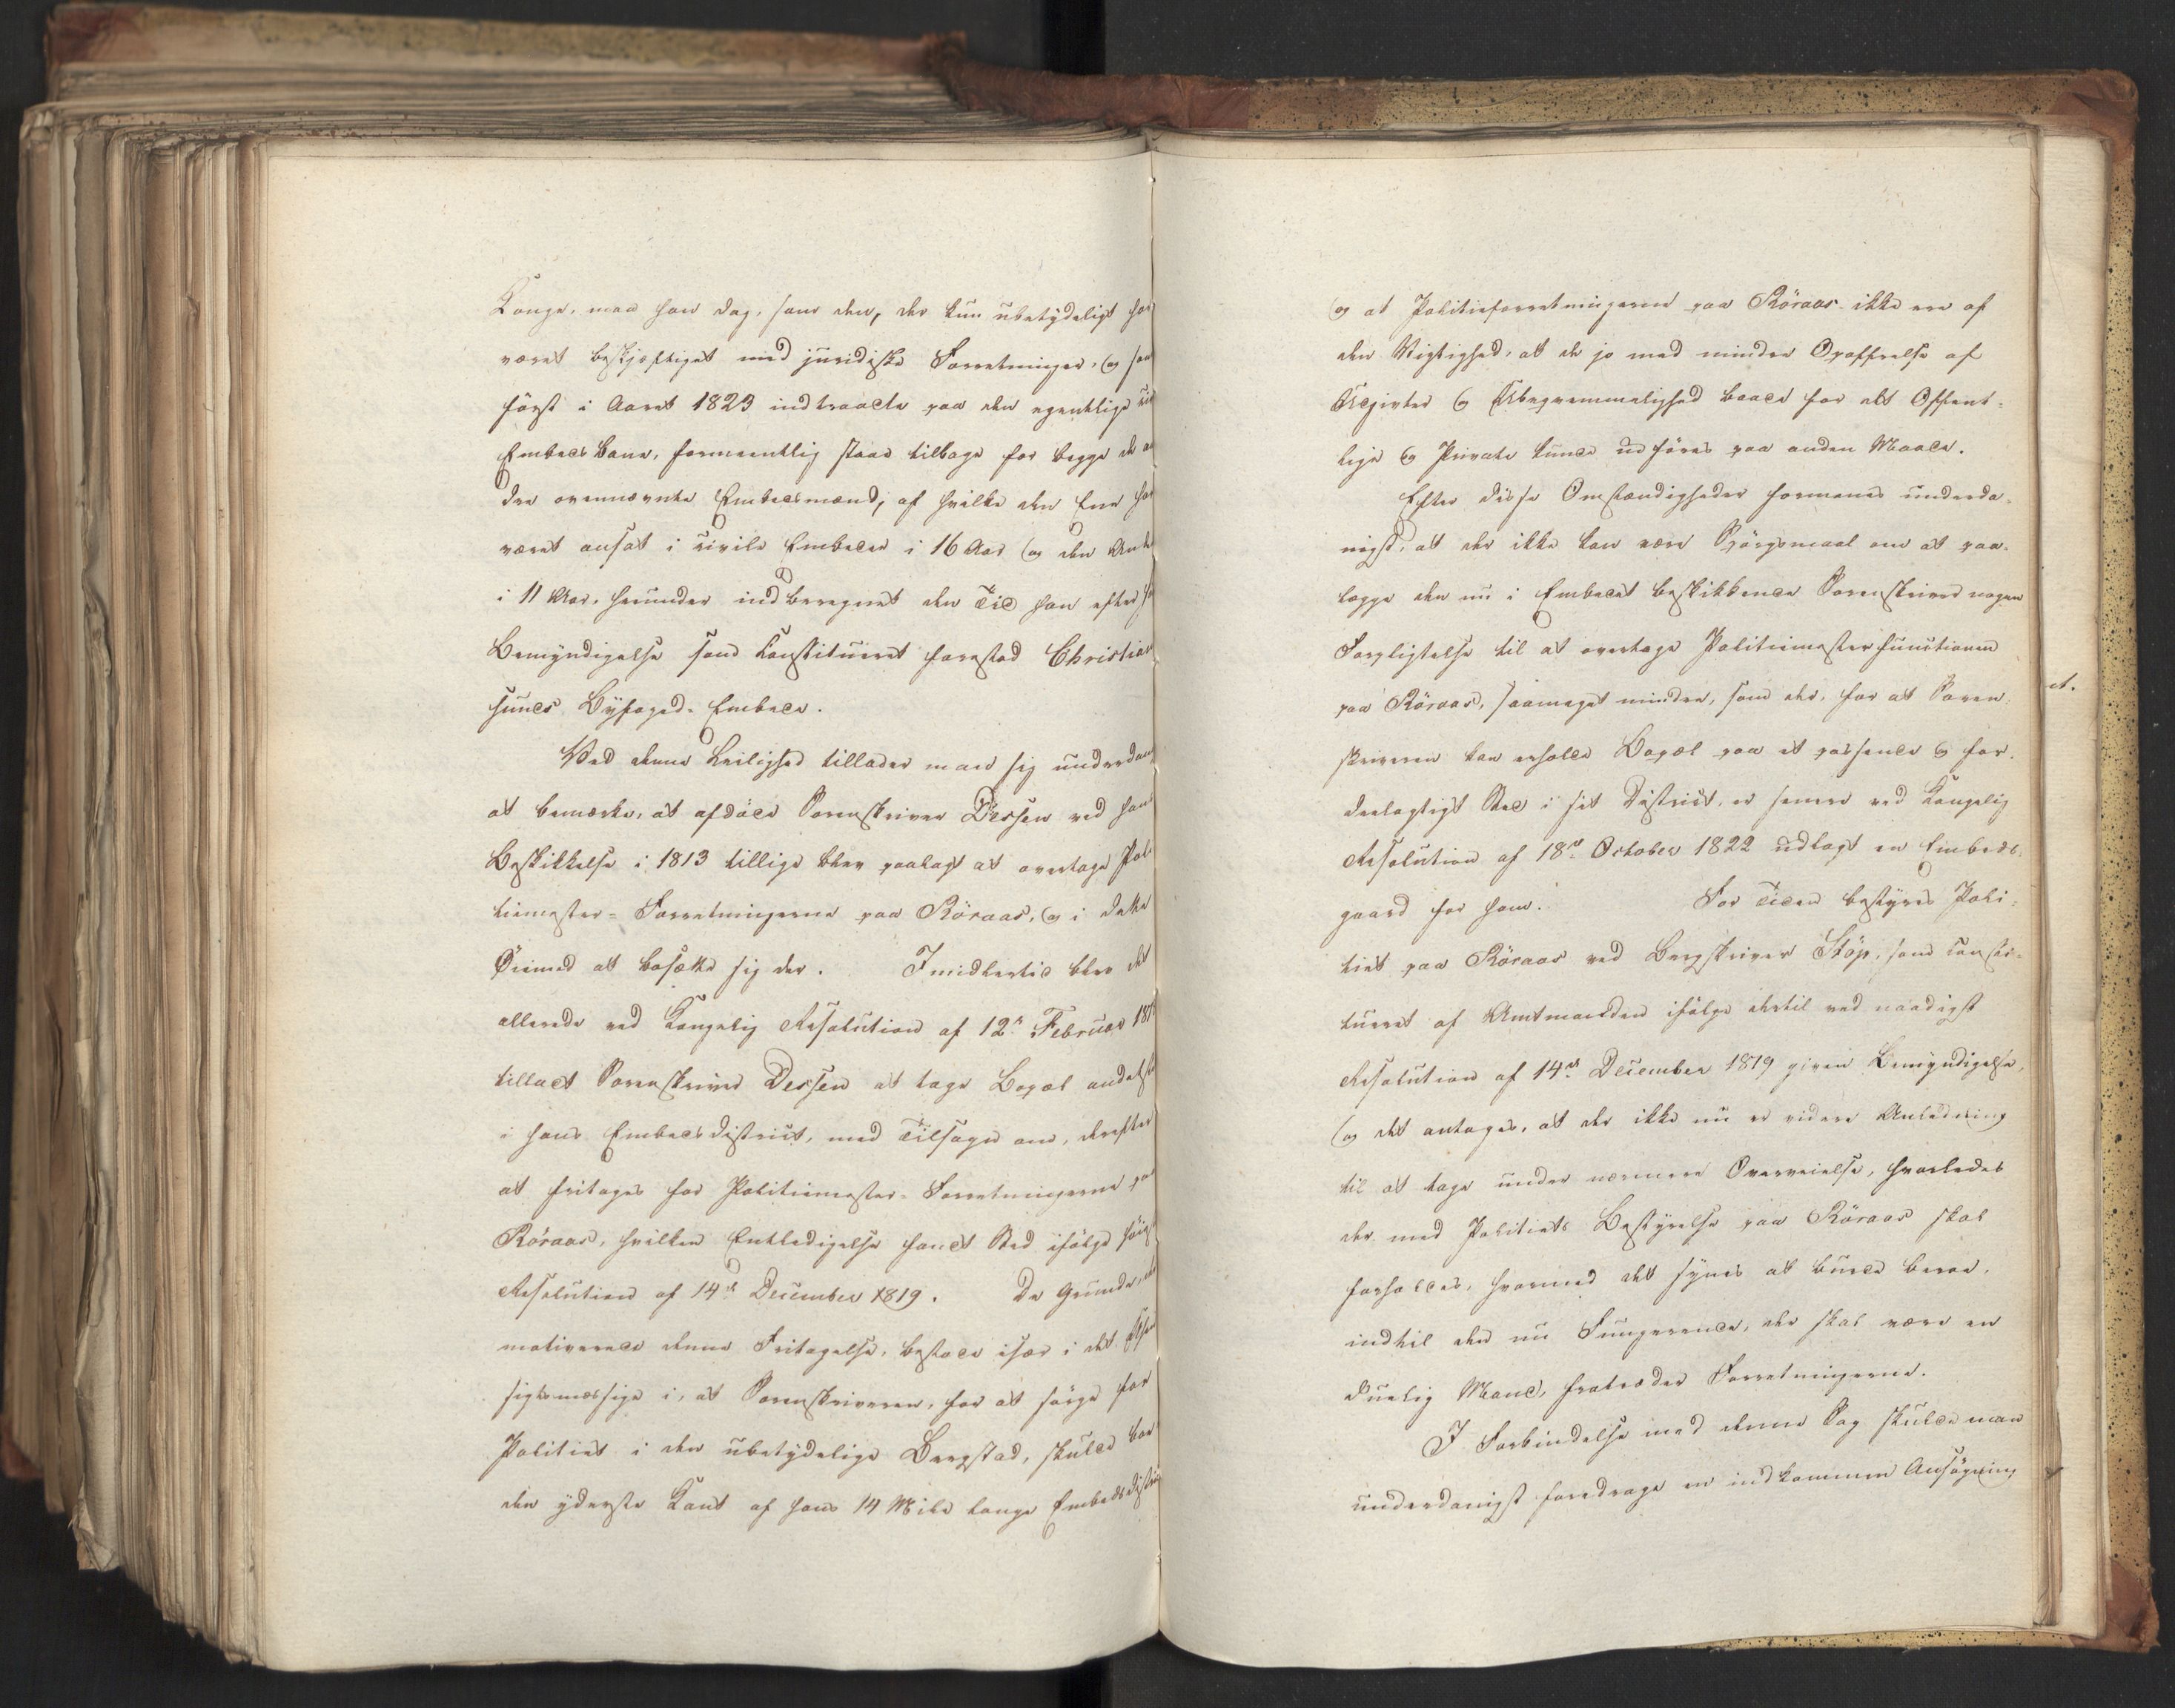 Konge, maa han dog, som den, der kun ubetydeligt har
været beskjæftiget med juridiske Forretninger, og som
först i Aaret 1823 indtraadte paa den egentlige
Embedsbane, formeentlig staae tilbage for begge de an
dre ovennævnte Embedsmænd, af hvilke den Ene har
været ansat i civile Embeder i 16 Aar og den Anden
i 11 Aar, herunder indberegnet den Tid han efter
Bemyndigelse som Constitueret forestod Christian
sunds Byfoged-Embede.
Ved denne Leilighed tillader man sig underdan
at bemærke, at afdöde Sorenskriver Dessen ved hans
Beskikkelse i 1813 tillige blev paalagt at overtage Poli
timester-Forretningerne paa Röraas, og i dette
Öiemed at bosætte sig der. Imidlertid blev det
allerede ved Kongelig Resolution af 12te Februar 181
tilladt Sorenskriver Dessen at tage Bopæl andetst
i hans Embedsdistrict, med Tilsagn om, derefter
at fritages for Politiemester-Forretningerne paa
Röraas, hvilken Entledigelse fandt Sted ifölge höies
Resolution af 14de December 1819. De Grunde, der
motiverede denne Fritagelse, bestode især i det Uhen
sigtsmæssige i, at Sorenskriveren, for at sörge for
Politiet i den ubetydelige Bergstad, skulde boe
den yderste Kant af hans 14 Mile lange Embedsdistri
og at Politieforretningerne paa Röraas ikke ere af
den Vigtighed, at de jo med mindre Opoffrelse af
Udgivter og Ubeqvemmelighed baade for det Offent-
lige og Private kunde udföres paa anden Maade.
Efter disse Omstændigheder formenes underda-
nigst, at der ikke kan være Spörgsmaal om at paa-
lægge den nu i Embedet beskikkende Sorenskriver nogen
Forpligtelse til at overtage Politiemesterfunctionen
paa Röraas, saameget mindre, som der, for at Soren-
skriveren kan erholde Bopæl paa et passende og for-
deelagtigt Sted i sit District, er senere ved Kongelig
Resolution af 18de October 1822 udlagt en Embeds-
gaard for ham. For Tiden bestyres Poli-
tiet paa Röraas ved Bergskriver Stöp, som consti-
tueret af Amtmanden ifölge dertil ved naadigst
Resolution af 14de December 1819 given Bemyndigelse,
og det antages, at der ikke nu er videre Anledning
til at tage under nærmere Overveielse, hvorledes
der med Politiets Bestyrelse paa Röraas skal
forholdes, hvormed det synes at burde beroe,
indtil den nu Fungerende, der skal være en
duelig Mand, fratræder Forretningerne.
I Forbindelse med denne Sag skulde man
underdanigst foredrage en indkommen Ansögning
et.